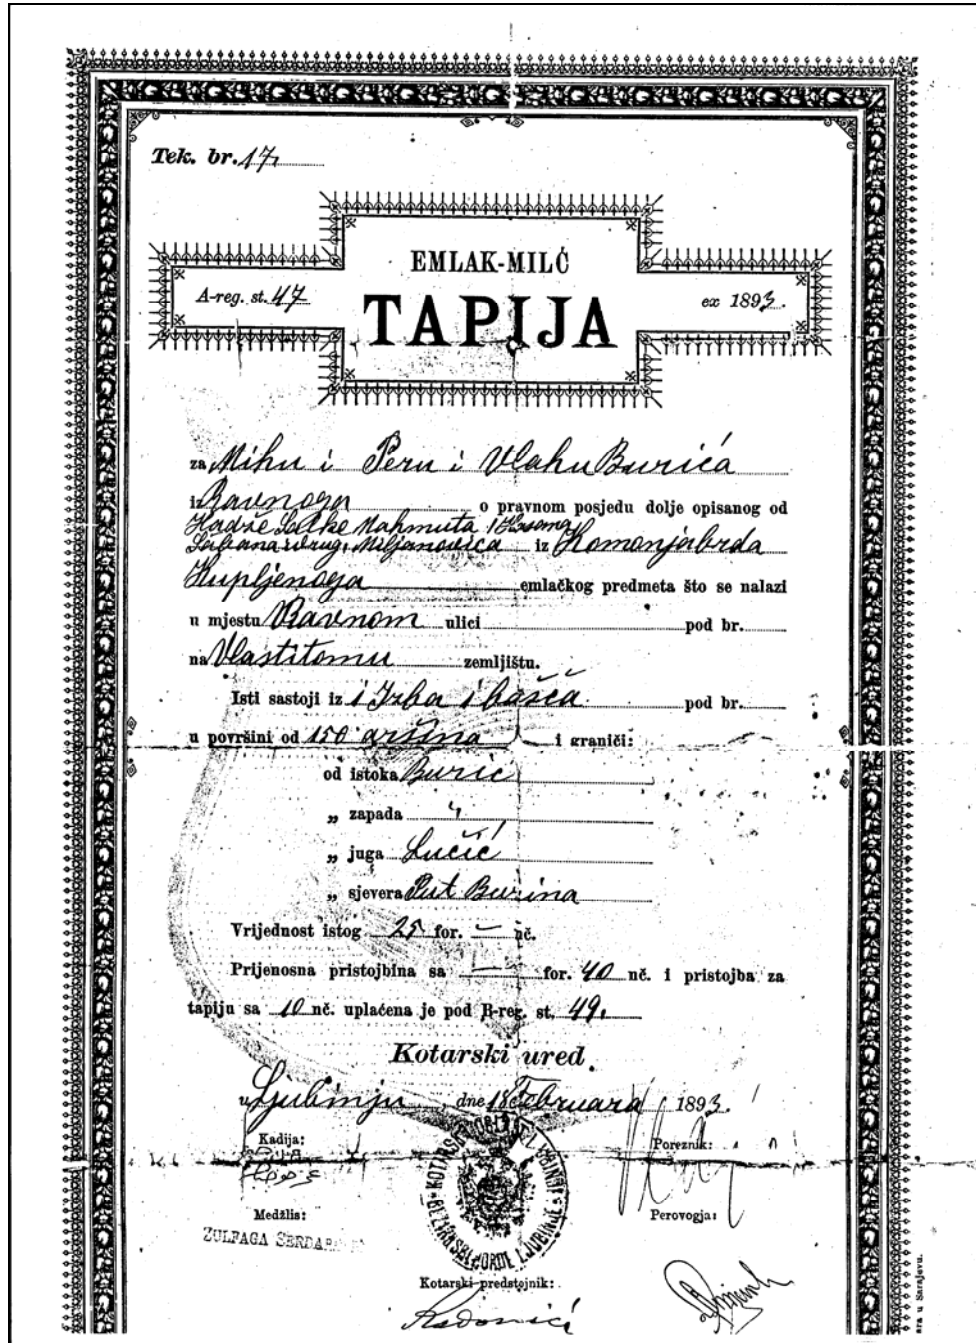 Tek. br. 17.
EMLAK-MILĆ
A-reg. st. 47
TAPIJA
ex 1893.
za Mihu i Peru i Vlahu Burića
iz Ravnoga o pravnom posjedu dolje opisanog od
Hadže Mahmuta i
Miljanovića iz Komanjabrda
Kupljenoga emlačkog predmeta što se nalazi
u mjestu Ravnom ulici pod br.
na Vlastitomu zemljištu.
Isti sastoji iz 1 Izba i bašča pod br.
u površini od 150 aršina i graniči:
od istoka Burić
„ zapada "
„ juga Lučić
„ sjevera Put Burina
Vrijednost istog 25 for. — nč.
Prijenosna pristojbina sa — for. 40 nč. i pristojba za
tapiju sa 10 nč. uplaćena je pod B-reg. st. 49.
Kotarski ured
u Ljubinju dne 18 Februara 1893.
Kadija:
Poreznik:
Medžlis:
Perovogja:
ZULFAGA
KOTARSKI LJUBINJE
Kotarski predstojnik:
Radonić
ara u Sarajevu.